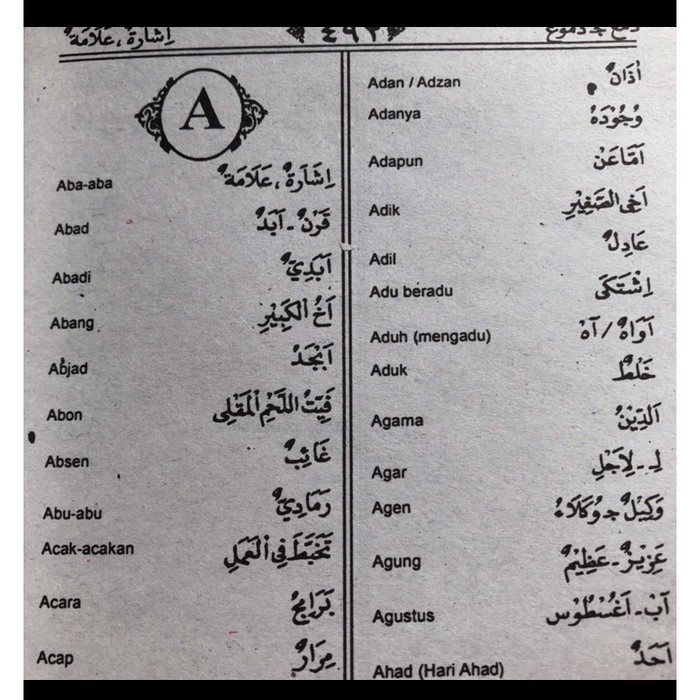 اِشَارَةٌ ، عَلَامَةٌ
٤٩٢
دمع ج دموع
A
Aba-aba اِشَارَةٌ ، عَلَامَةٌ
Abad قَرْنٌ - اَبَدٌ
Abadi اَبَدِيٌّ
Abang اَخُ الْكَبِيْرِ
Abjad اَبْجَدٌ
Abon فَتِيْتُ اللَّحْمِ الْمَقْلِى
Absen غَائِبٌ
Abu-abu رَمَادِيٌّ
Acak-acakan تَخَبَّطَ فِى الْعَمَلِ
Acara بَرَامِجٌ
Acap مِرَارٌ
Adan / Adzan اُذَانٌ
Adanya وُجُوْدَهُ
Adapun اَمَّاعَنْ
Adik اَخِى الصَّغِيْرِ
Adil عَادِلٌ
Adu beradu اِشْتَكَى
Aduh (mengadu) اَوَاهٌ / آهْ
Aduk خَلْطٌ
Agama اَلدِّيْنُ
Agar لِـ - لِاَجْلِ
Agen وَكِيْلٌ ج وُكَلَاءُ
Agung عَزِيْزٌ - عَظِيْمٌ
Agustus آبْ - اَغُسْطُوْس
Ahad (Hari Ahad) اَحَدٌ